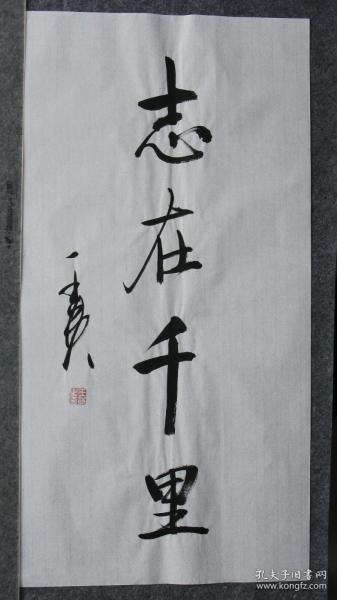 志在千里
孔夫子旧书网
www.kongfz.com